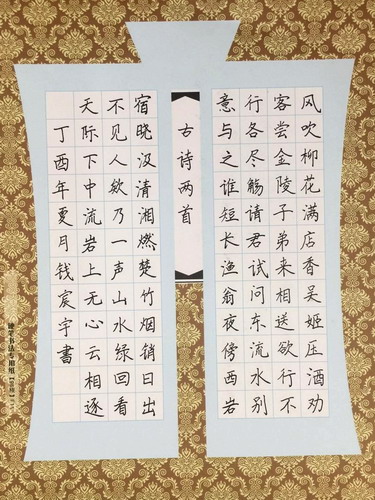 风吹柳花满店香吴姬压酒劝
客尝金陵子弟来相送欲行不
行各尽觞请君试问东流水别
意与之谁短长渔翁夜傍西岩
古诗两首
宿晓汲清湘燃楚竹烟销日出
不见人欸乃一声山水绿回看
天际下中流岩上无心云相逐
丁酉年夏月钱宸宇書
书法专用纸